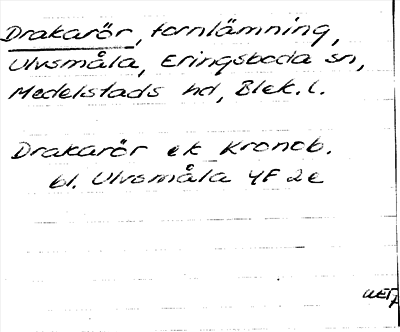 Drakarör, fornlämning,
Ulvsmåla, Eringsboda sn,
Medelstads hd, Blek. l.
Drakarör ek Kronob.
bl. Ulvsmåla 4F 2e